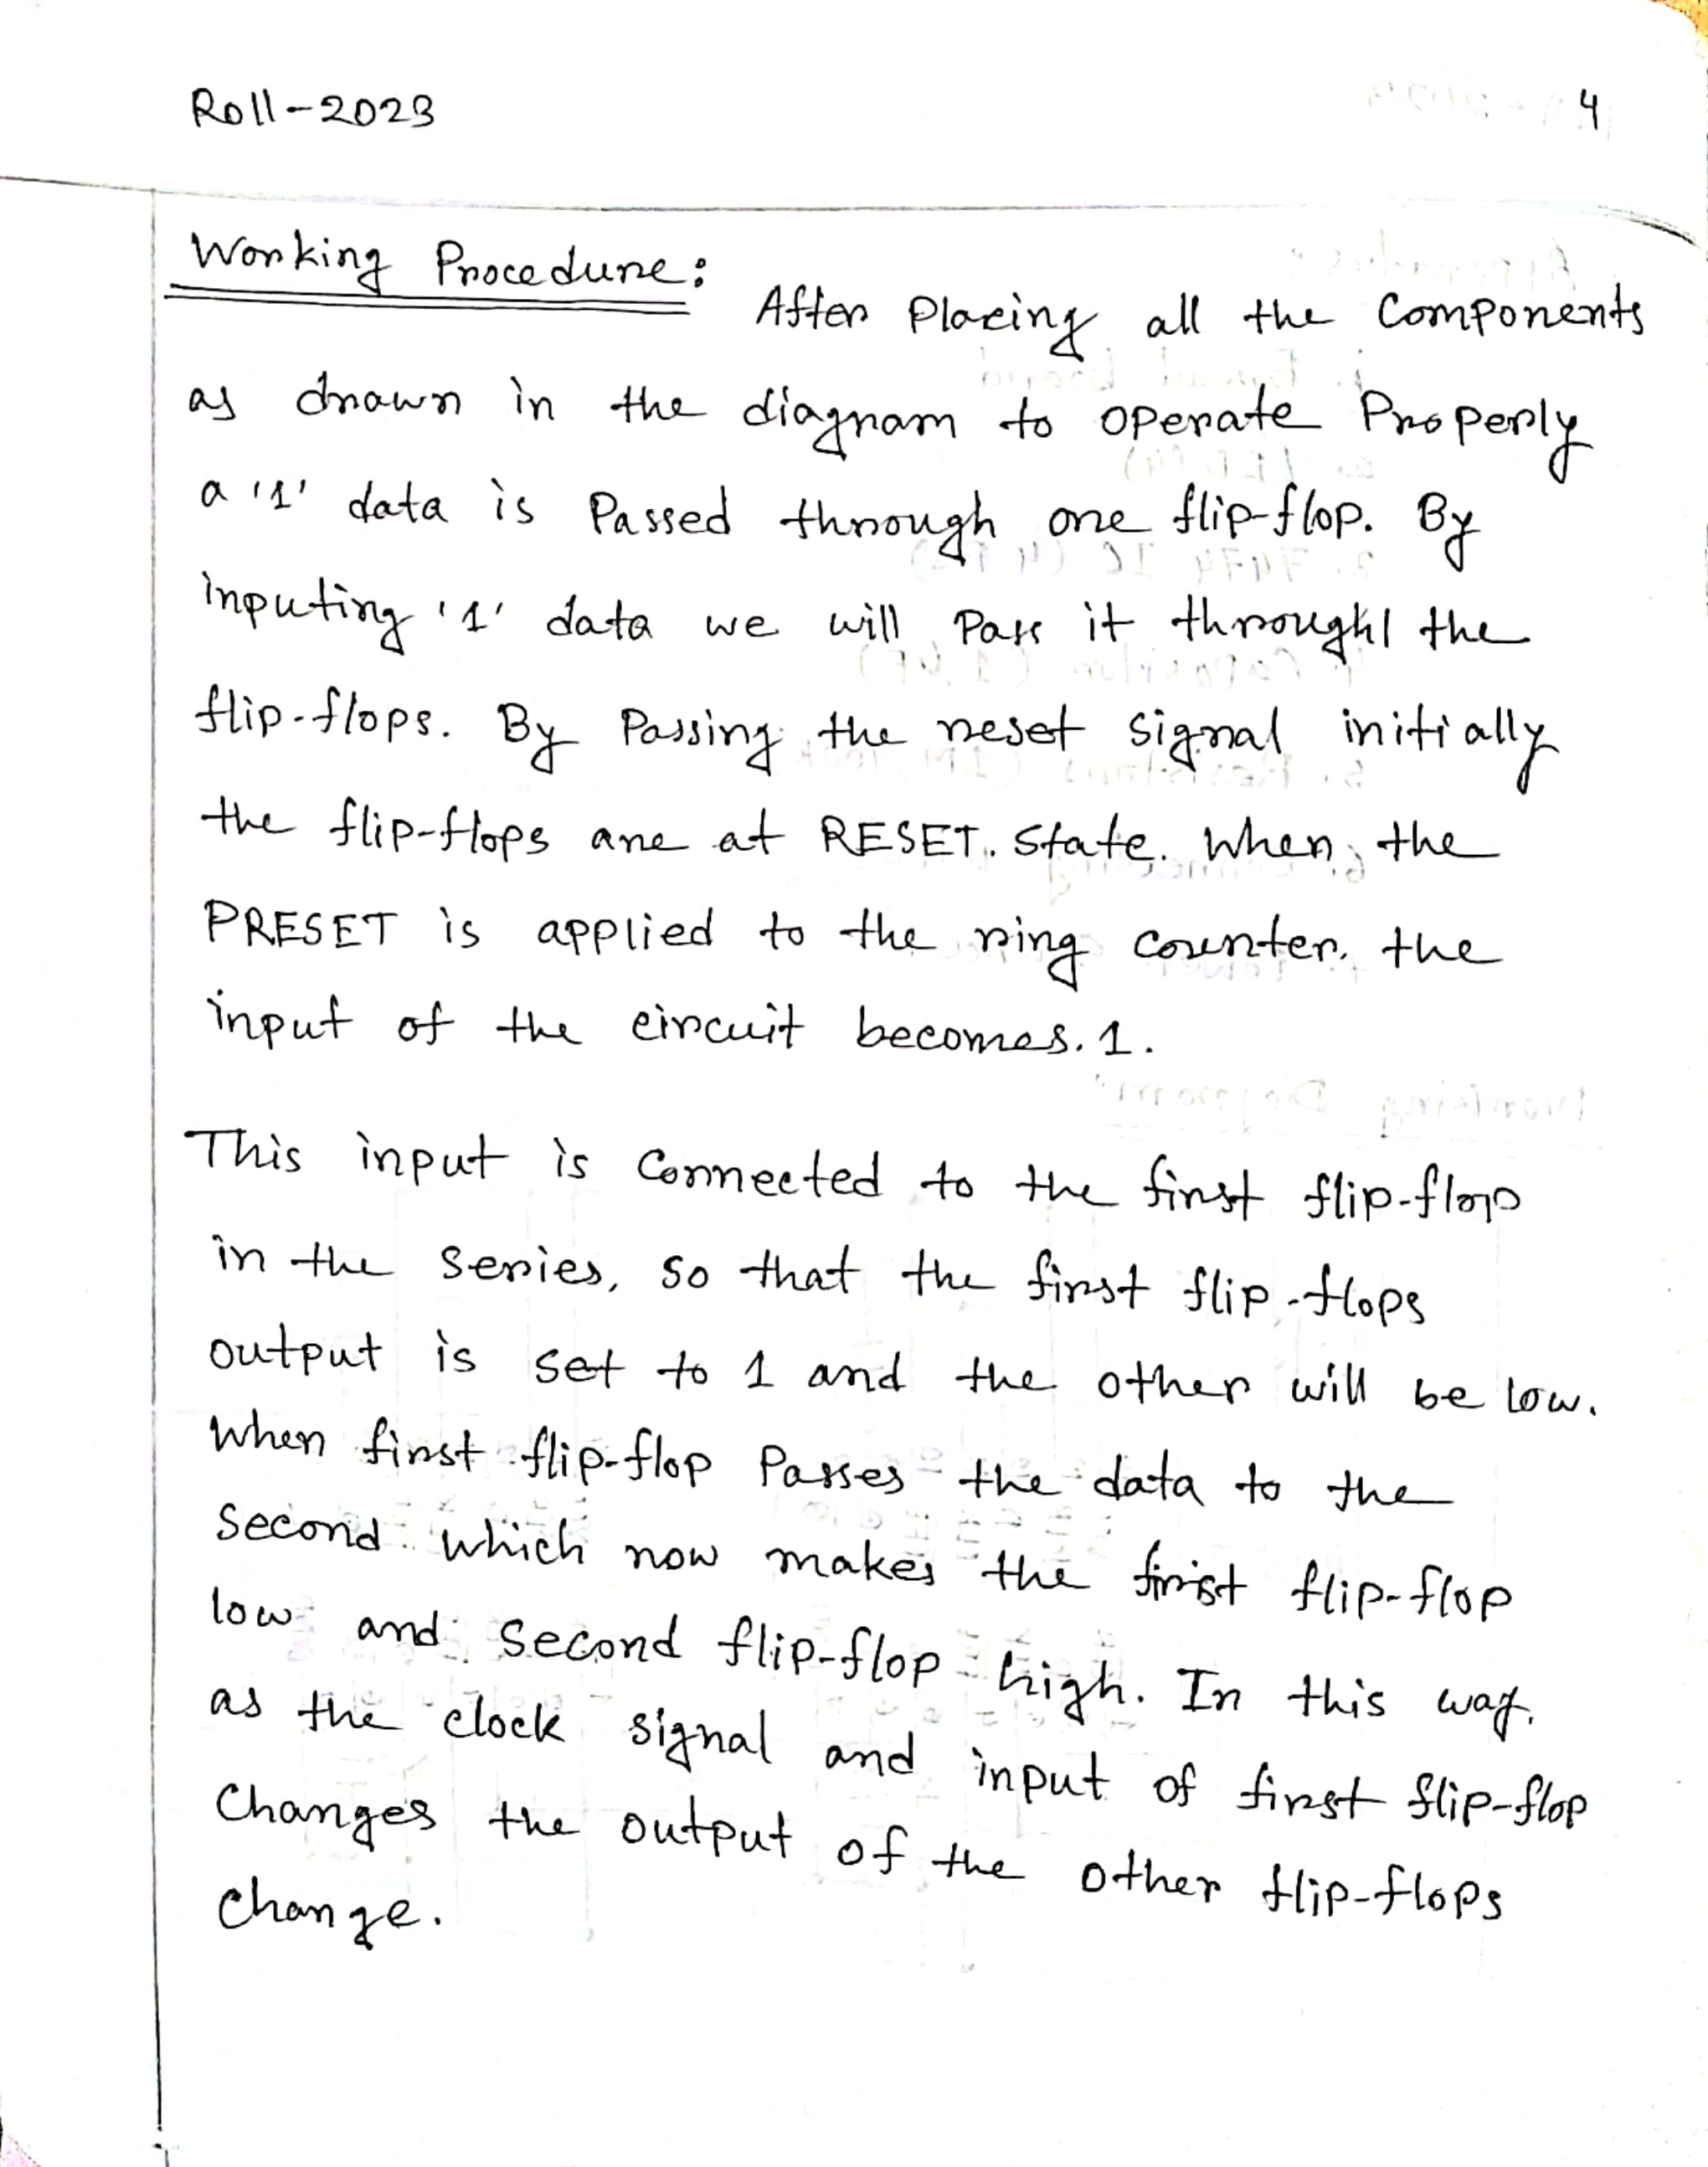 Roll-2023
4
Working Procedure:
After Placing all the Components
as drawn in the diagram to operate Properly
a '1' data is Passed through one flip-flop. By
inputing '1' data we will Pass it through the
flip-flops. By Passing the reset signal initially
the flip-flops are at RESET. State. When, the
PRESET is applied to the ring counter, the
input of the circuit becomes. 1.
This input is Connected to the first flip-flop
in the Series, so that the first flip-flops
output is set to 1 and the other will be low.
When first flip-flop Passes the data to the
Second which now makes the first flip-flop
low and second flip-flop high. In this way,
as the clock signal and input of first flip-flop
Changes the output of the other flip-flops
change.